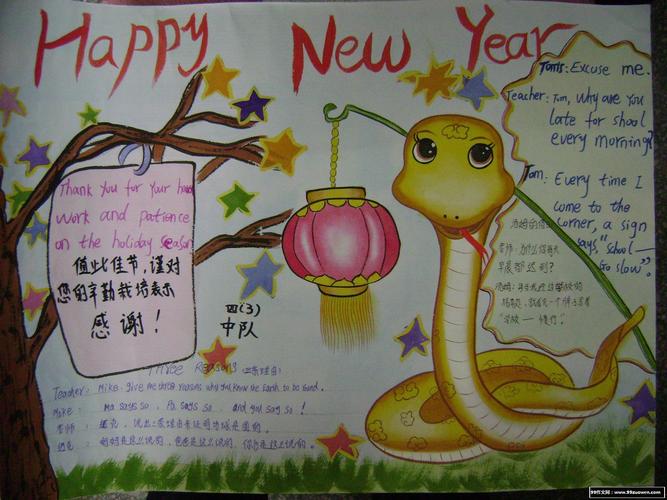 Happy New Year
Thank you for your hard
work and patience
on the holiday season
值此佳节,谨对
您的辛勤栽培表示
感谢!
四(3)
中队
Tom's: Excuse me.
Teacher: Tom, why are you
late for shool
every morning?
Tom: Every time I
come to the
corner, a sign
says, "School—
Go slow".
老师:为什么你每天
早晨都迟到?
"学校——慢行"
Three Reasons
Teacher: Mike, give me three reasons why you know the Earth to be round.
Make: Ma says so, Pa says so, and you say so!
老师:
妈妈是这么说的,爸爸是这么说的,你也是这么说的。
99作文网:www.99zuowen.com